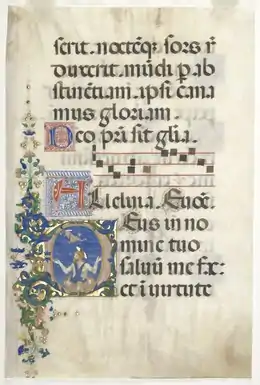 serit. noctēq; sors ñ
duxerit. mūdi p ab
stinentiam. ipsi cana
mus gloriam.
Deo pri sit glia.
Alleluia. Euoē.
Deus in no
mine tuo
saluū me fac:
et i uirtute